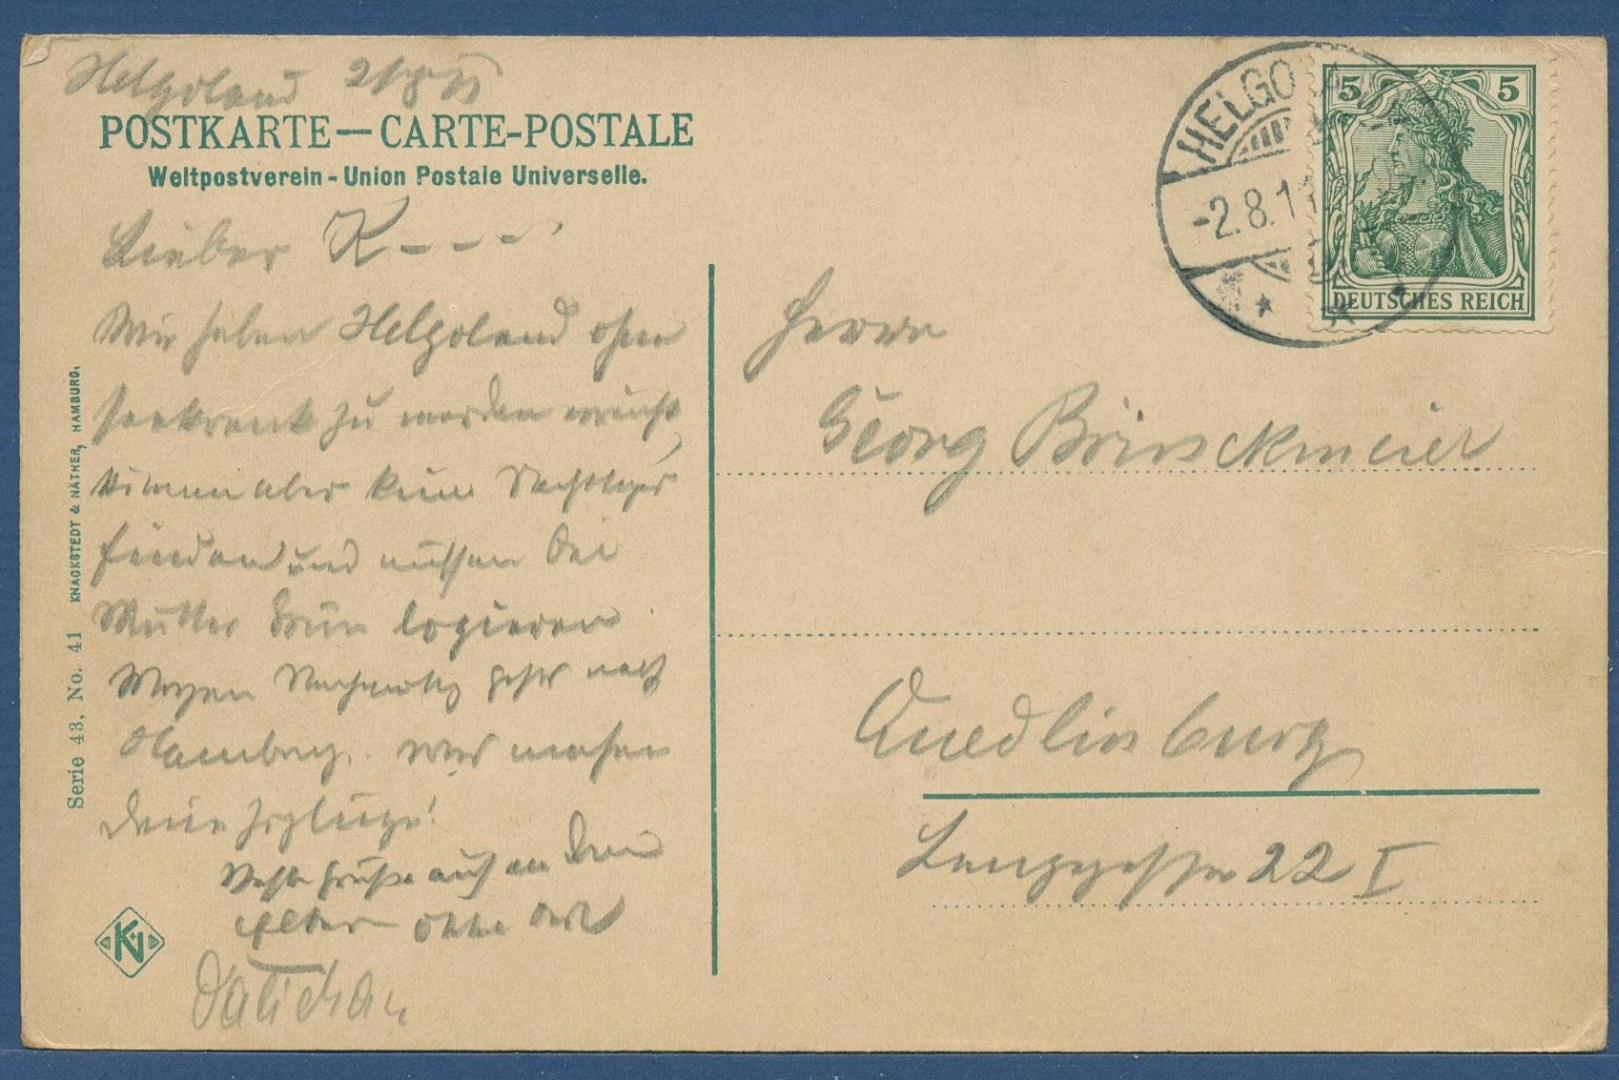 Helgoland 2/8
POSTKARTE — CARTE-POSTALE
Weltpostverein - Union Postale Universelle.
Lieber K - - -
Wir haben Helgoland ohne
seekrank zu werden erreicht,
können aber kein Nachtlager
finden und müssen bei
Mutter Grün logieren
Morgen Nachmittag geht's nach
Hamburg. Wir machen
Beste Grüße auch an Deine
Eltern
Serie 43, No. 41 KNACKSTEDT & NÄTHER, HAMBURG.
KN
HELGOLAND
-2.8.1
5 5
DEUTSCHES REICH
Herrn
Georg Brinckmeier
Quedlinburg
22 I